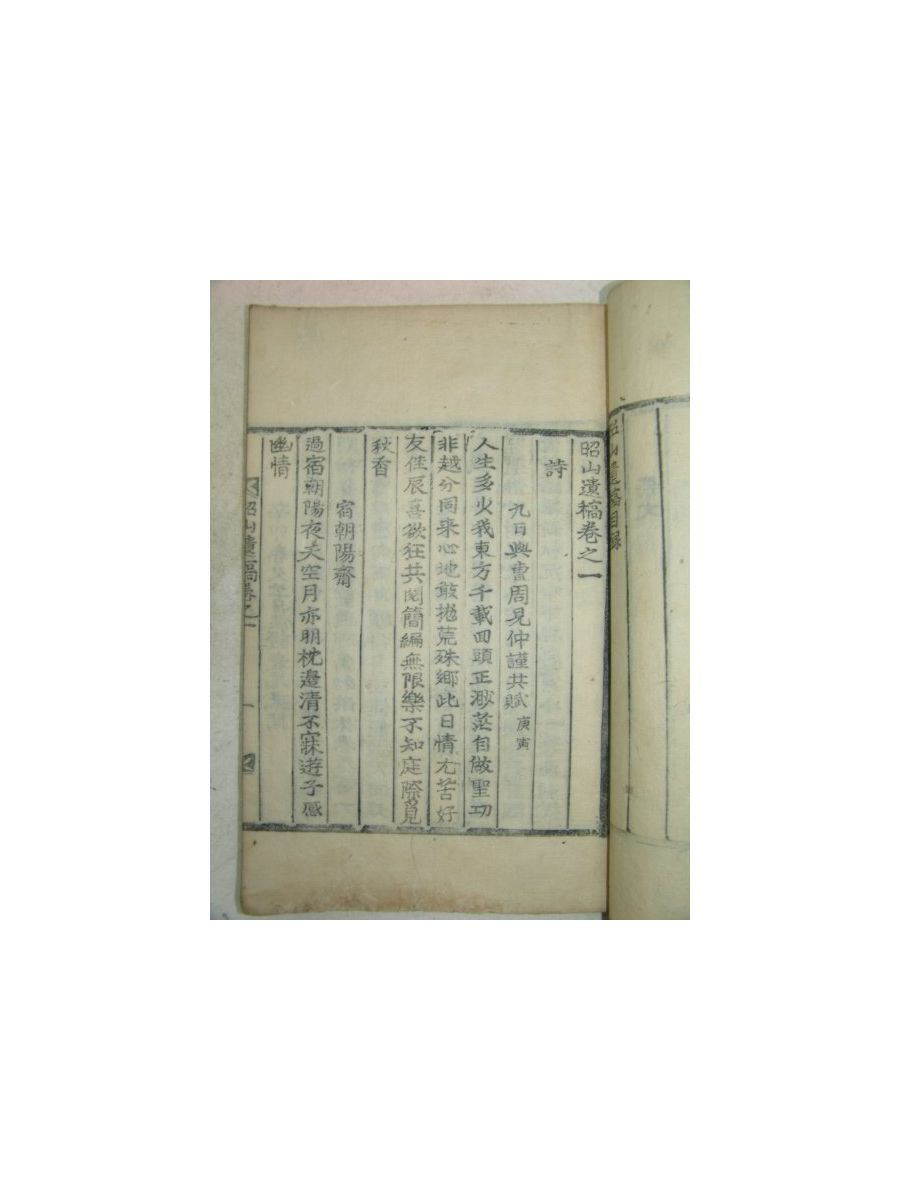 昭山遺稿卷之一
詩
九日與曺周見仲謹共賦 庚寅
人生多火我東方千載回頭正渺茫自做聖功
非越分同来心地敢抛荒殊鄕此日情尤苦好
友佳辰喜欲狂共閱簡編無限樂不知庭際覓
秋香
宿朝陽齋
過宿朝陽夜天空月亦明枕邊清不寐遊子感
幽情
昭山遺稿卷之一